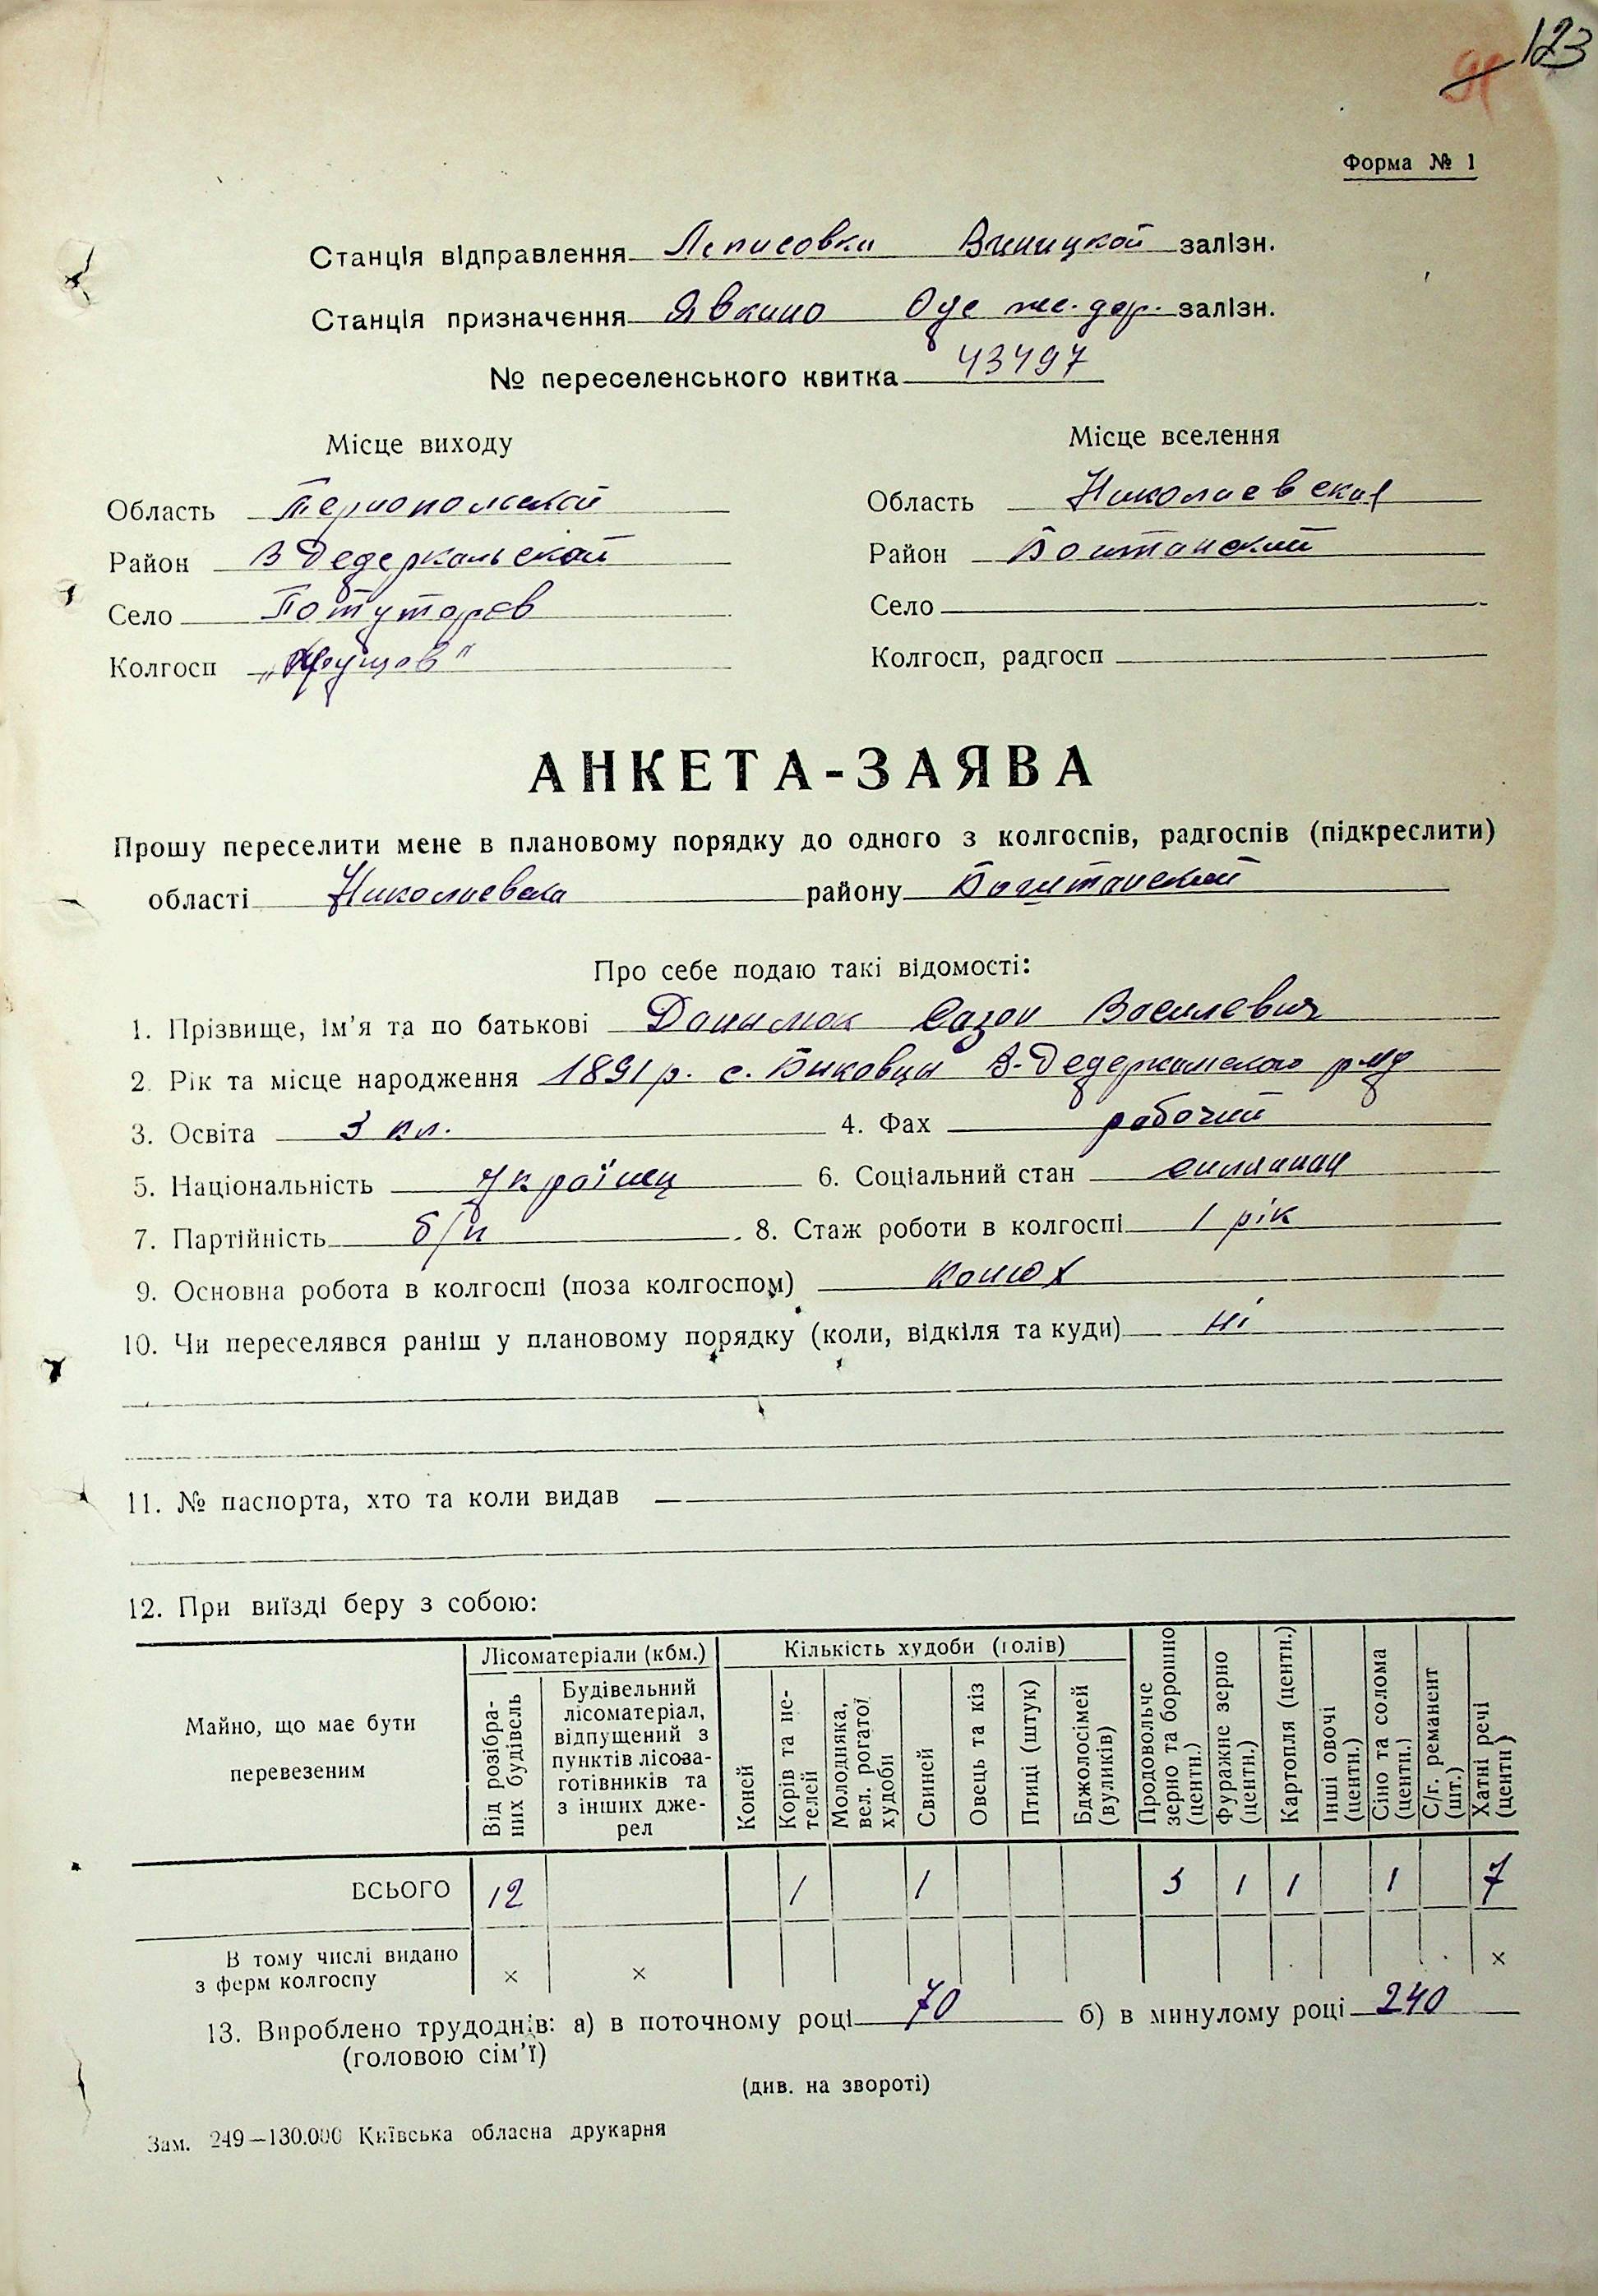 123
91
Форма № 1
Станція відправлення Леписовка Винницкой залізн.
Станція призначення Явкино Оде ж.дор. залізн.
№ переселенського квитка 43497
Місце виходу
Місце вселення
Область Тернопольской
Область Николаевская
Район В Дедеркальской
Район Боштанский
Село Потуторов
Село
Колгосп „Хрущов"
Колгосп, радгосп
АНКЕТА-ЗАЯВА
Прошу переселити мене в плановому порядку до одного з колгоспів, радгоспів (підкреслити)
області Николаевска району Боштанский
Про себе подаю такі відомості:
1. Прізвище, ім'я та по батькові Данилюк Сазон Василевич
2. Рік та місце народження 1891 р. с. Биковци В-Дедеркальского р-ну
3. Освіта 3 кл. 4. Фах рабочий
5. Національність Українец 6. Соціальний стан
7. Партійність б/п 8. Стаж роботи в колгоспі 1 рік
9. Основна робота в колгоспі (поза колгоспом) конюх
10. Чи переселявся раніш у плановому порядку (коли, відкіля та куди) ні
11. № паспорта, хто та коли видав
12. При виїзді беру з собою:
Майно, що має бути перевезеним
Лісоматеріали (кбм.)
Кількість худоби (голів)
Від розібраних будівель
Будівельний лісоматеріал, відпущений з пунктів лісозаготівників та з інших джерел
Коней
Корів та нетелей
Молодняка, вел. рогатої худоби
Свиней
Овець та кіз
Птиці (штук)
Бджолосімей (вуликів)
Продовольче зерно та борошно (центн.)
Фуражне зерно (центн.)
Картопля (центн.)
Інші овочі (центн.)
Сіно та солома (центн.)
С/г. реманент (шт.)
Хатні речі (центн)
ВСЬОГО 12 1 1 3 1 1 1 7
В тому числі видано
з ферм колгоспу × × ×
13. Вироблено трудоднів: а) в поточному році 70 б) в минулому році 240
(головою сім'ї)
(див. на звороті)
Зам. 249—130.000 Київська обласна друкарня